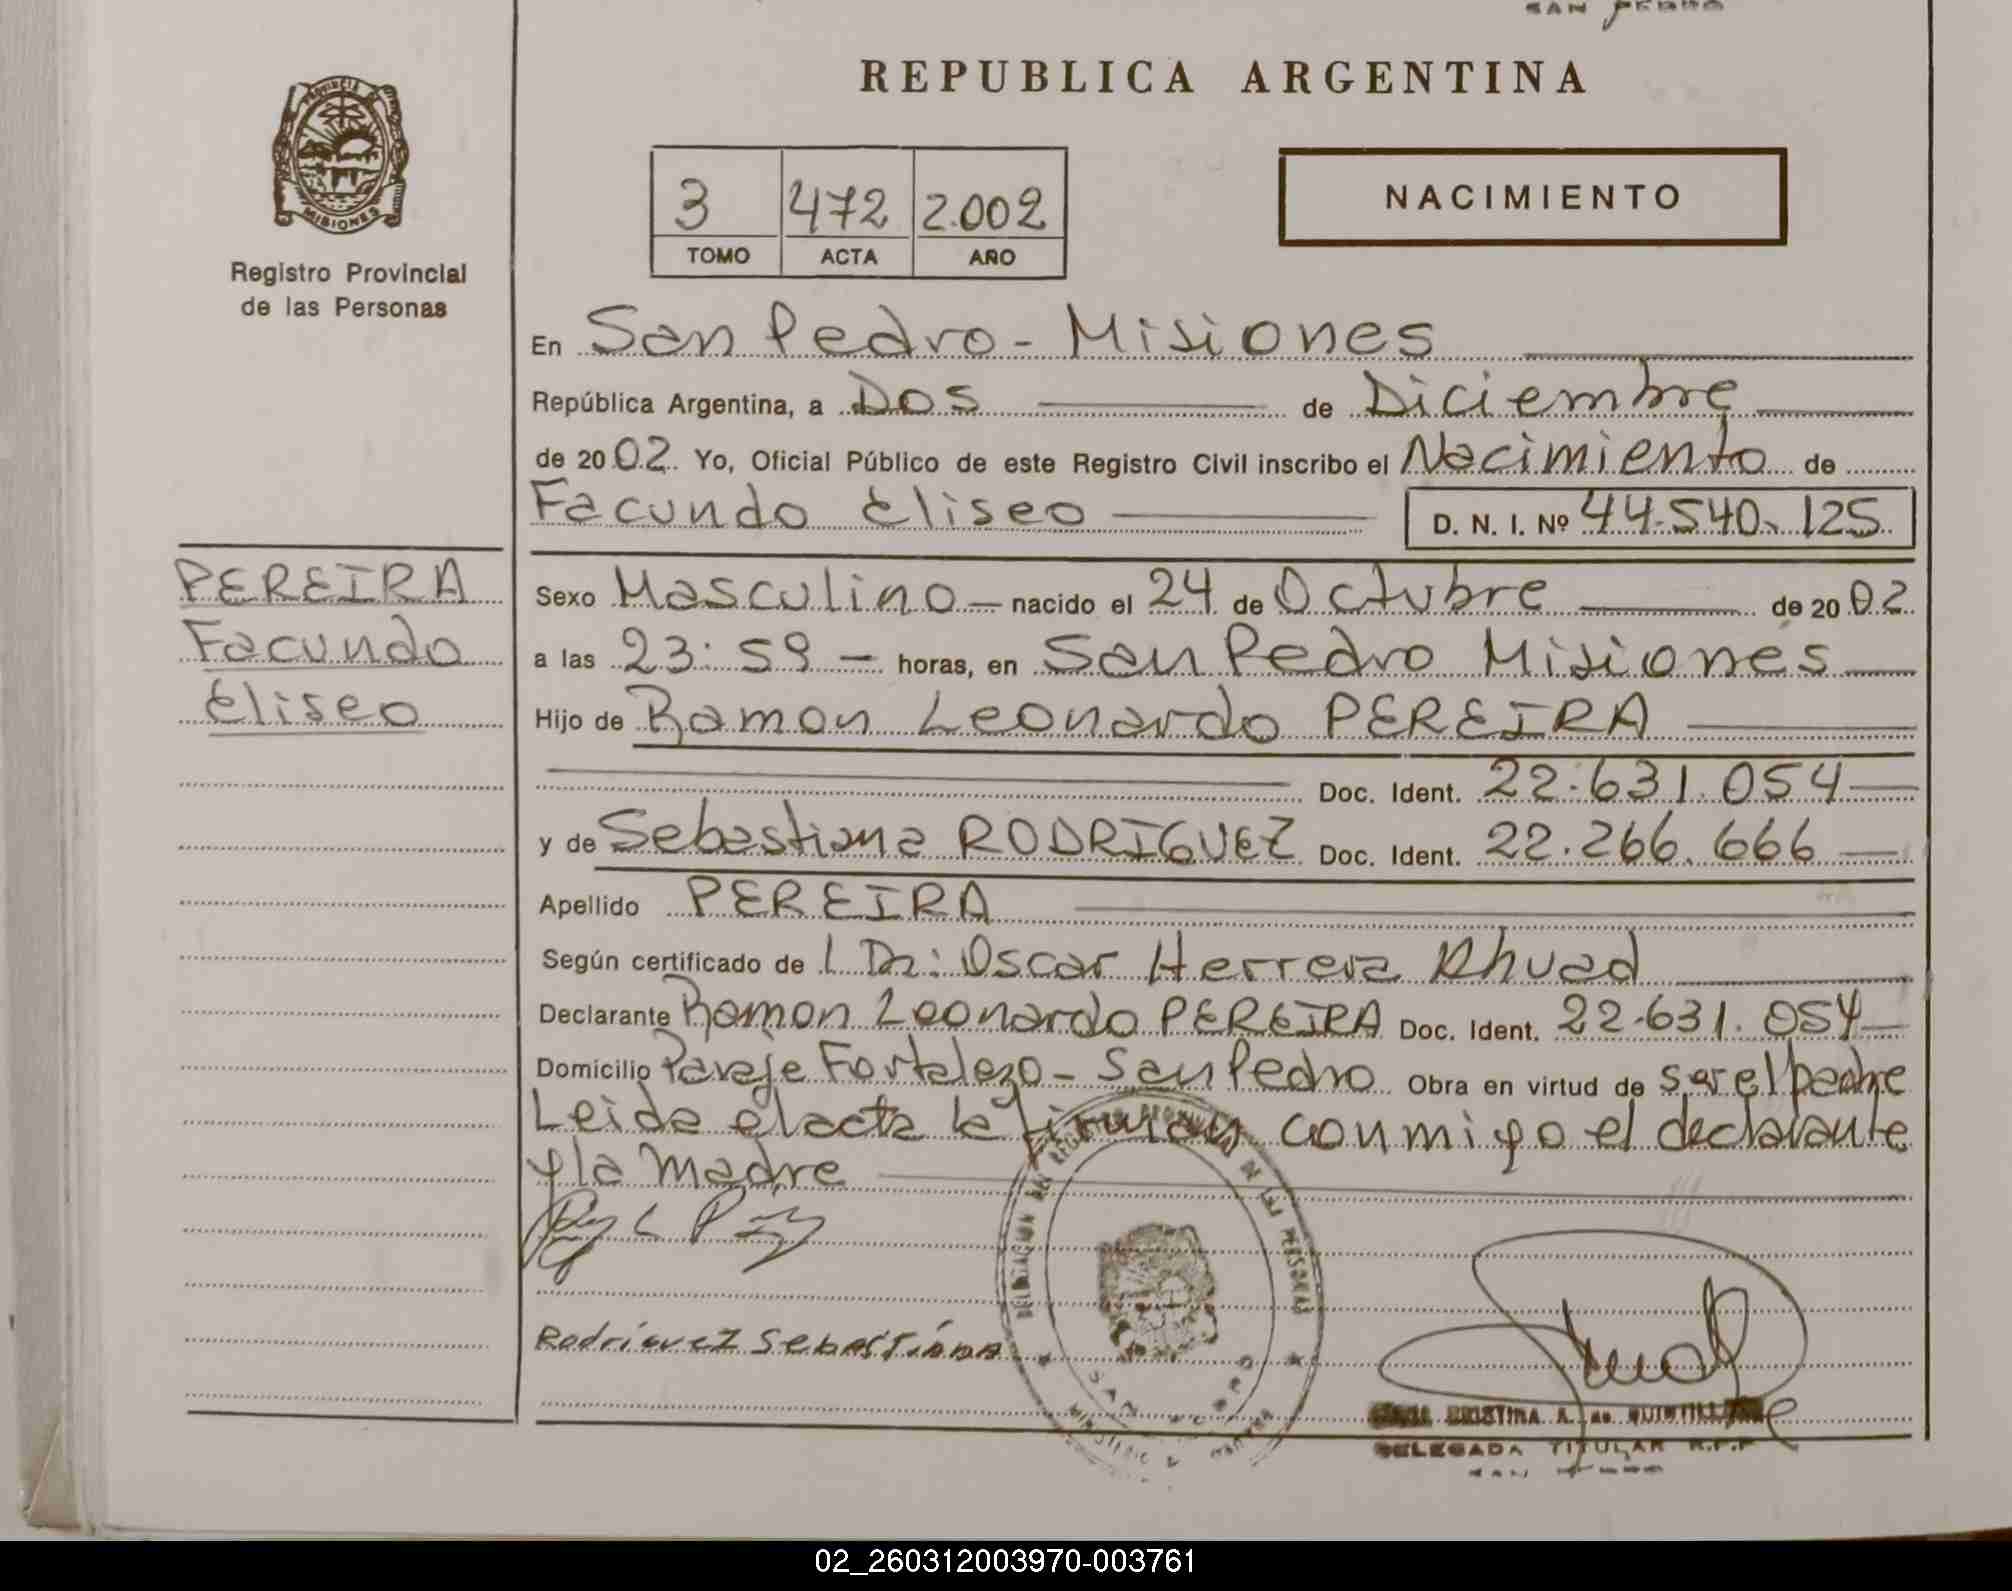 SAN PEDRO
REPUBLICA ARGENTINA
PROVINCIA DE
MISIONES
Registro Provincial
de las Personas
3 472 2.002
TOMO ACTA AÑO
NACIMIENTO
En San Pedro - Misiones
República Argentina, a Dos de Diciembre
de 2002. Yo, Oficial Público de este Registro Civil inscribo el Nacimiento de
Facundo Eliseo D. N. I. Nº 44.540.125
PEREIRA
Facundo
Eliseo
Sexo Masculino - nacido el 24 de Octubre de 2002
a las 23:59 - horas, en San Pedro Misiones
Hijo de Ramon Leonardo PEREIRA
Doc. Ident. 22.631.054
y de Sebastiana RODRIGUEZ Doc. Ident. 22.266.666
Apellido PEREIRA
Según certificado de Dr: Oscar Herrera Rhuad
Declarante Ramon Leonardo PEREIRA Doc. Ident. 22.631.054
Domicilio Paraje Fortaleza - San Pedro Obra en virtud de ser el padre
Leida el acta la firman conmigo el declarante
y la Madre
DELEGACION DEL REGISTRO DE LAS PERSONAS
SAN PEDRO
Rodríguez Sebastiana
CRISTINA A. de
DELEGADA TITULAR R.P.P.
SAN PEDRO
02_260312003970-003761